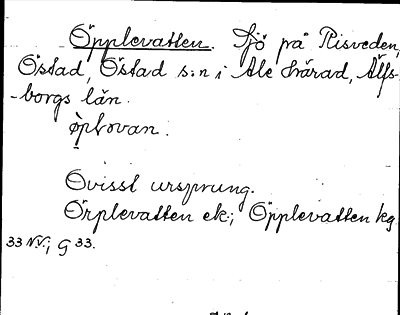 Öpplevatten. Sjö på Risveden,
Östad, Östad s:n i Ale härad, Älfs-
-borgs län.
öplovan.
Ovisst ursprung.
Örplevatten ek.; Öpplevatten kg
33 N.V.; G 33.